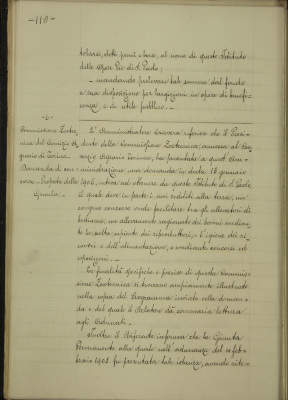 -110-
tolarsi, dette penti e borse, al nome di questo Istituto
delle Opere Pie di S. Paolo;
- mandando prelevarsi tale somma dal fondo
a sua disposizione per largizioni in opere di benefi-
cenza e di utile pubblico. -
-6-
Commissione Zootec-
nica del Comizio A-
grario di Torino.
Domanda di con-
corso. Riparto della
Giunta.
L'Amministratore riferisce che il Presi-
dente della Commissione Zootecnica, annessa al Co-
mizio Agrario Torinese, ha presentata a quest'Am-
ministrazione una domanda in data 18 gennaio
1906, intesa ad ottenere da questo Istituto di S. Paolo,
il quale deve in parte i suoi redditi alla terra, un
congruo concorso onde facilitare tra gli allevatori di
bestiame, un allevamento razionale dei bovini median-
te la scelta sapiente dei riproduttori, l'igiene dei ri-
coveri e dell'alimentazione, e mediante concorsi ed
esposizioni. -
Le finalità specifiche e precise di questa Commis-
sione Zootecnica si trovano ampiamente illustrate
nella copia del Programma unita alla doman-
da e del quale il Relatore dà sommaria lettura
agli Adunati. -
Inoltre il Riferente informa che la Giunta
Permanente alla quale nell'adunanza del 10 feb-
braio 1905 fu presentata tale istanza, avendo rite-